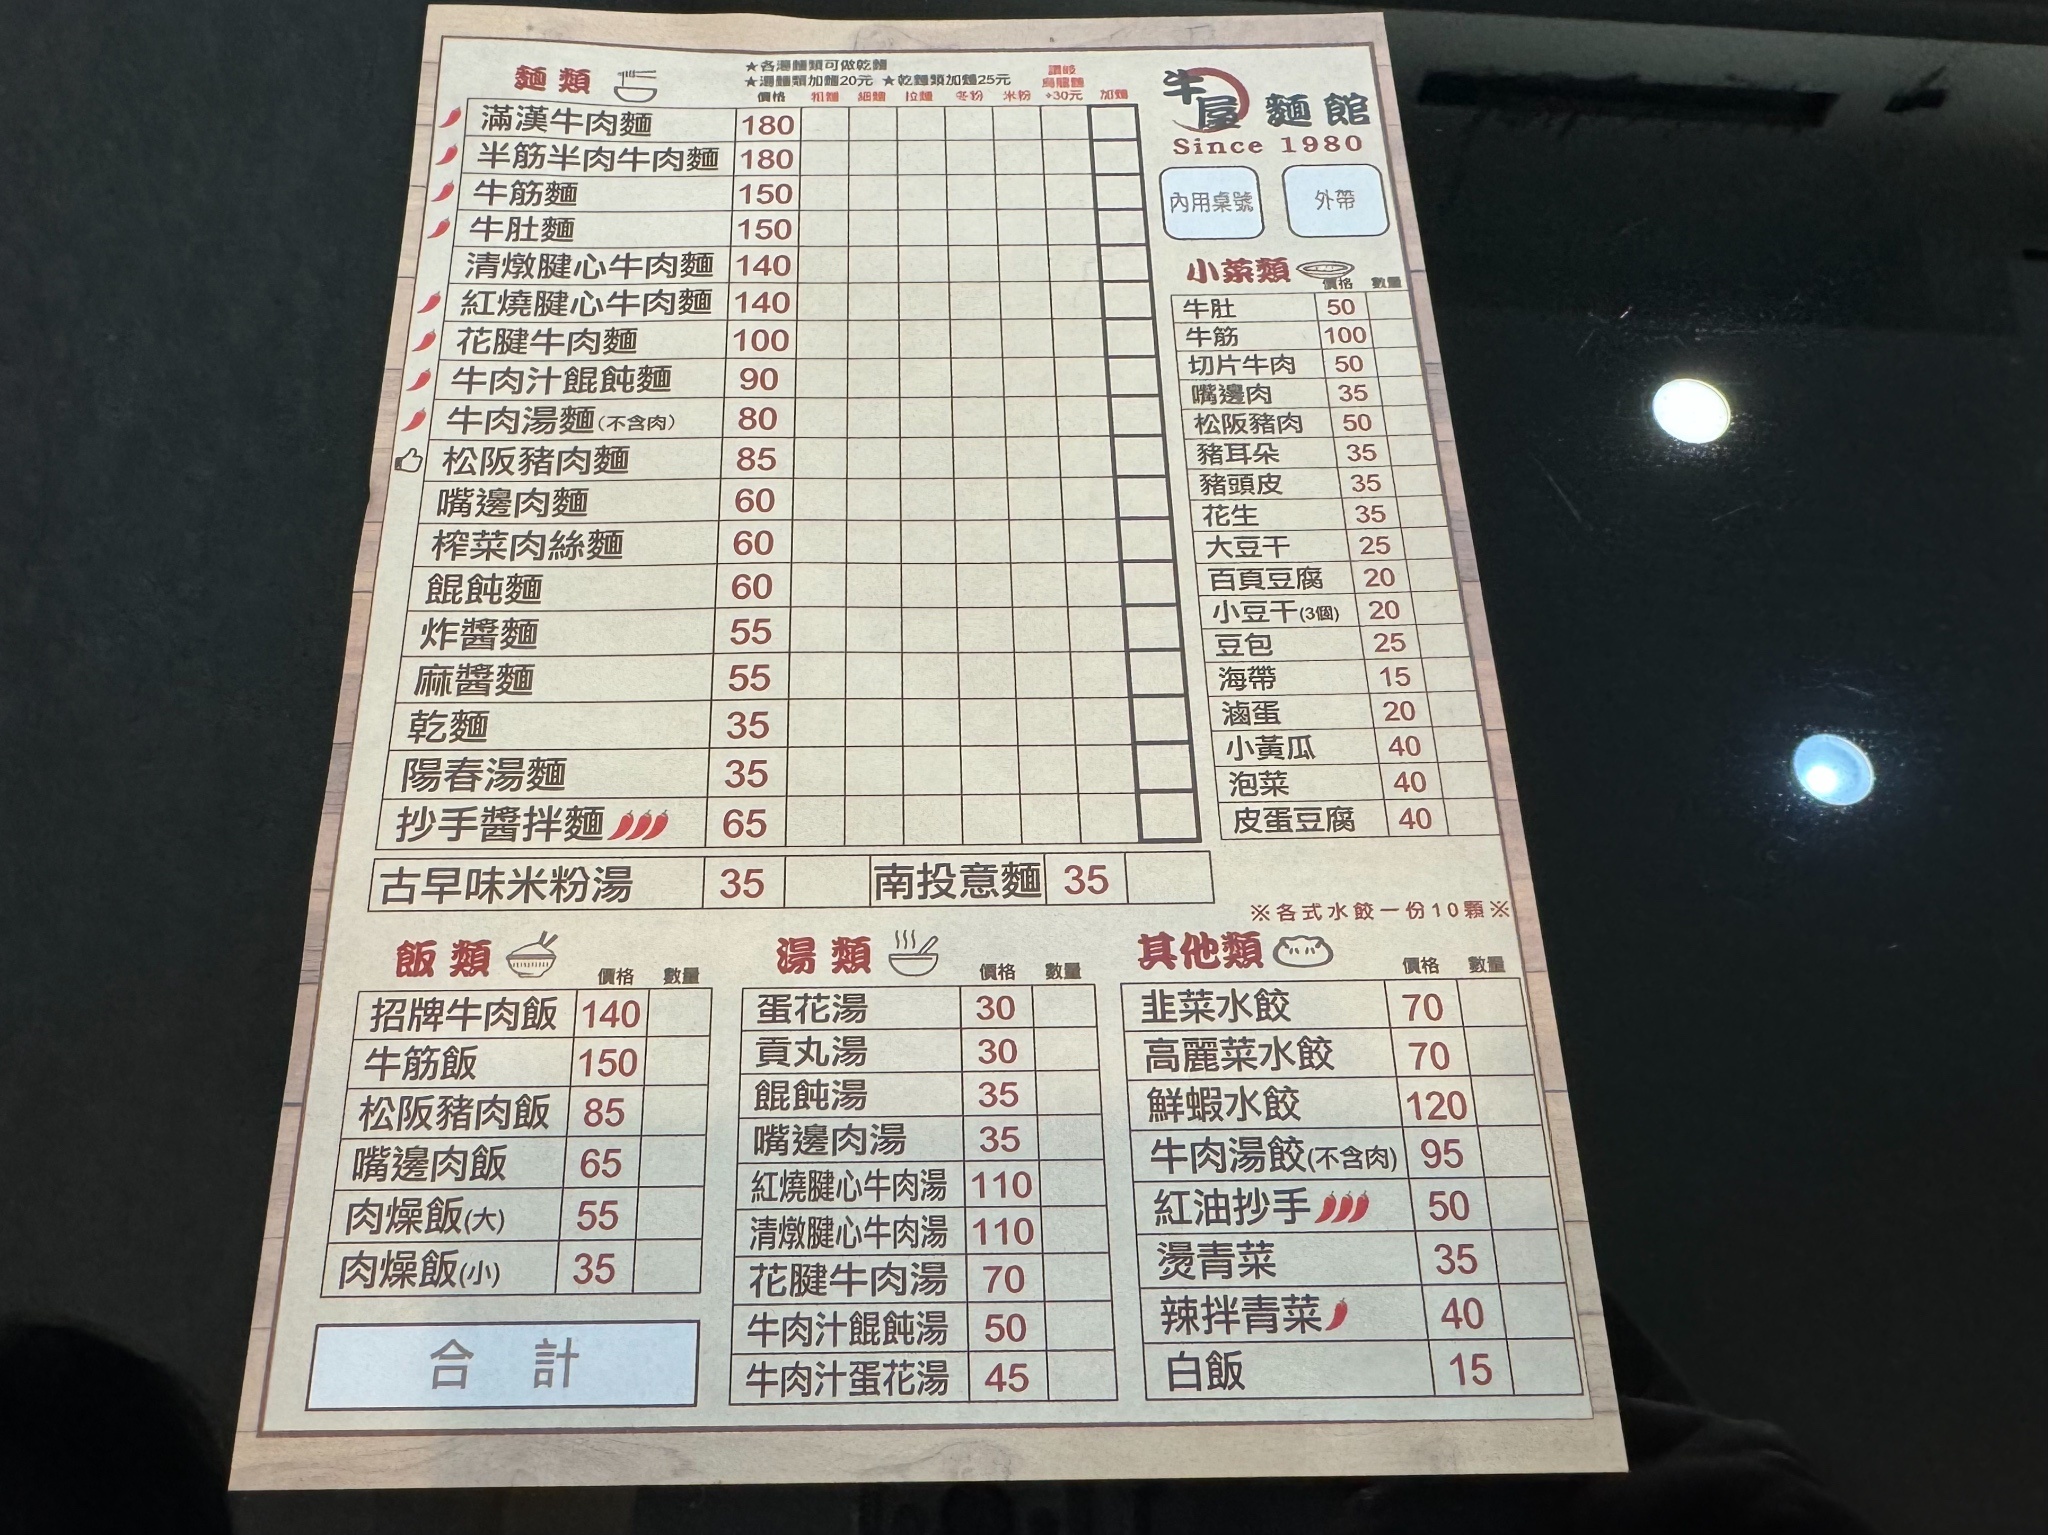 麵類
★各湯麵類可做乾麵
★湯麵類加麵20元 ★乾麵類加麵25元
價格 粗麵 細麵 拉麵 冬粉 米粉 讚岐烏龍麵+30元 加麵
滿漢牛肉麵 180
半筋半肉牛肉麵 180
牛筋麵 150
牛肚麵 150
清燉腱心牛肉麵 140
紅燒腱心牛肉麵 140
花腱牛肉麵 100
牛肉汁餛飩麵 90
牛肉湯麵(不含肉) 80
松阪豬肉麵 85
嘴邊肉麵 60
榨菜肉絲麵 60
餛飩麵 60
炸醬麵 55
麻醬麵 55
乾麵 35
陽春湯麵 35
抄手醬拌麵 65
古早味米粉湯 35 南投意麵 35
牛屋麵館
Since 1980
內用桌號 外帶
小菜類 價格 數量
牛肚 50
牛筋 100
切片牛肉 50
嘴邊肉 35
松阪豬肉 50
豬耳朵 35
豬頭皮 35
花生 35
大豆干 25
百頁豆腐 20
小豆干(3個) 20
豆包 25
海帶 15
滷蛋 20
小黃瓜 40
泡菜 40
皮蛋豆腐 40
※各式水餃一份10顆※
飯類 價格 數量
招牌牛肉飯 140
牛筋飯 150
松阪豬肉飯 85
嘴邊肉飯 65
肉燥飯(大) 55
肉燥飯(小) 35
合計
湯類 價格 數量
蛋花湯 30
貢丸湯 30
餛飩湯 35
嘴邊肉湯 35
紅燒腱心牛肉湯 110
清燉腱心牛肉湯 110
花腱牛肉湯 70
牛肉汁餛飩湯 50
牛肉汁蛋花湯 45
其他類 價格 數量
韭菜水餃 70
高麗菜水餃 70
鮮蝦水餃 120
牛肉湯餃(不含肉) 95
紅油抄手 50
燙青菜 35
辣拌青菜 40
白飯 15